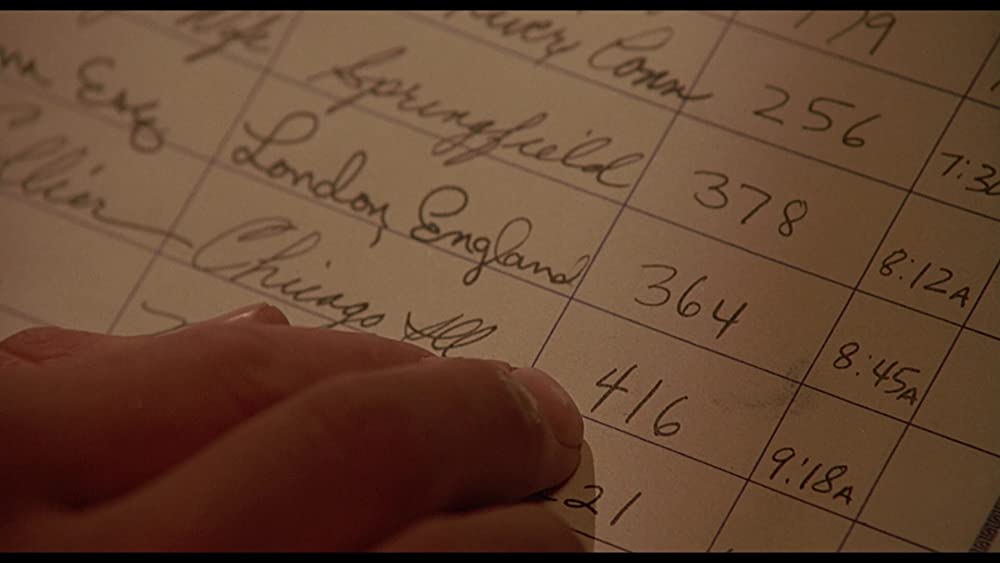 Conn 256 7:30
Wife Springfield 378 8:12A
London, England 364 8:45A
llier Chicago Ill 416 9:18A
21